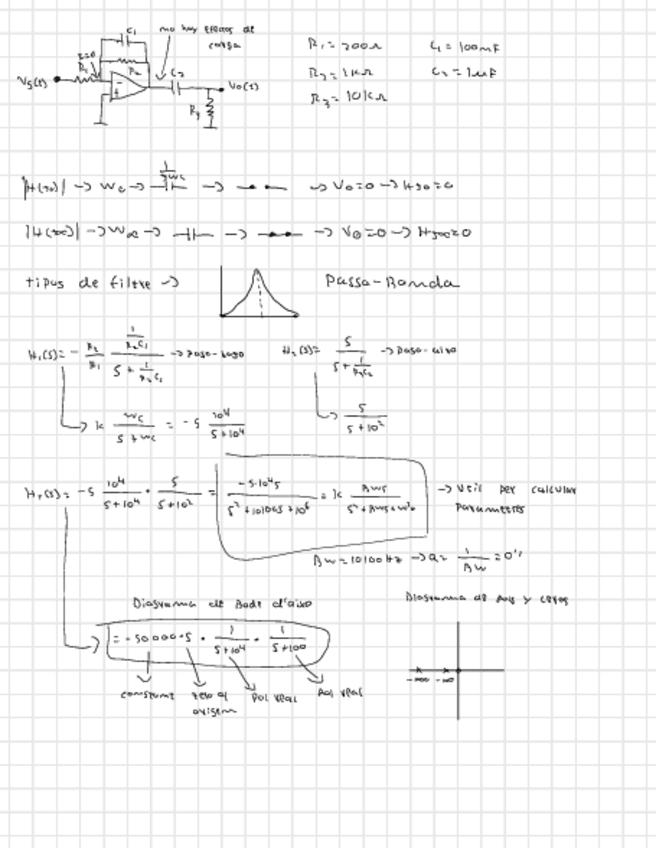 C₁ no hay efectos de
carga
R₁ R₂ C₂
Vs(t) Vo(t)
R₃
R₁ = 200Ω C₁ = 100nF
R₂ = 1KΩ C₂ = 1µF
R₃ = 10KΩ
|H(j0)| → W₀ → → → V₀=0 → Hj0=0
|H(j∞)| → W∞ → → → V₀=0 → Hj∞=0
tipus de filtre → Passa-Banda
H₁(s) = - R₂/R₁ (1/R₂C₁)/(s + 1/R₂C₁) → paso-bajo H₂(s) = s/(s + 1/R₃C₂) → paso-alto
→ k wc/(s + wc) = -5 10⁴/(s+10⁴) → s/(s+10²)
-5 10⁴/(s+10⁴) · s/(s+10²) = -5·10⁴s/(s² + 10100s + 10⁶) = k Bws/(s² + Bws + w₀²) → util per calcular
parametres
Bw = 10100 Hz → Q = 1/Bw
Diagrama de Bode d'aixo Diagrama de pols y ceros
= -50000·s · 1/(s+10⁴) · 1/(s+100)
constant zero al pol real pol real
origen